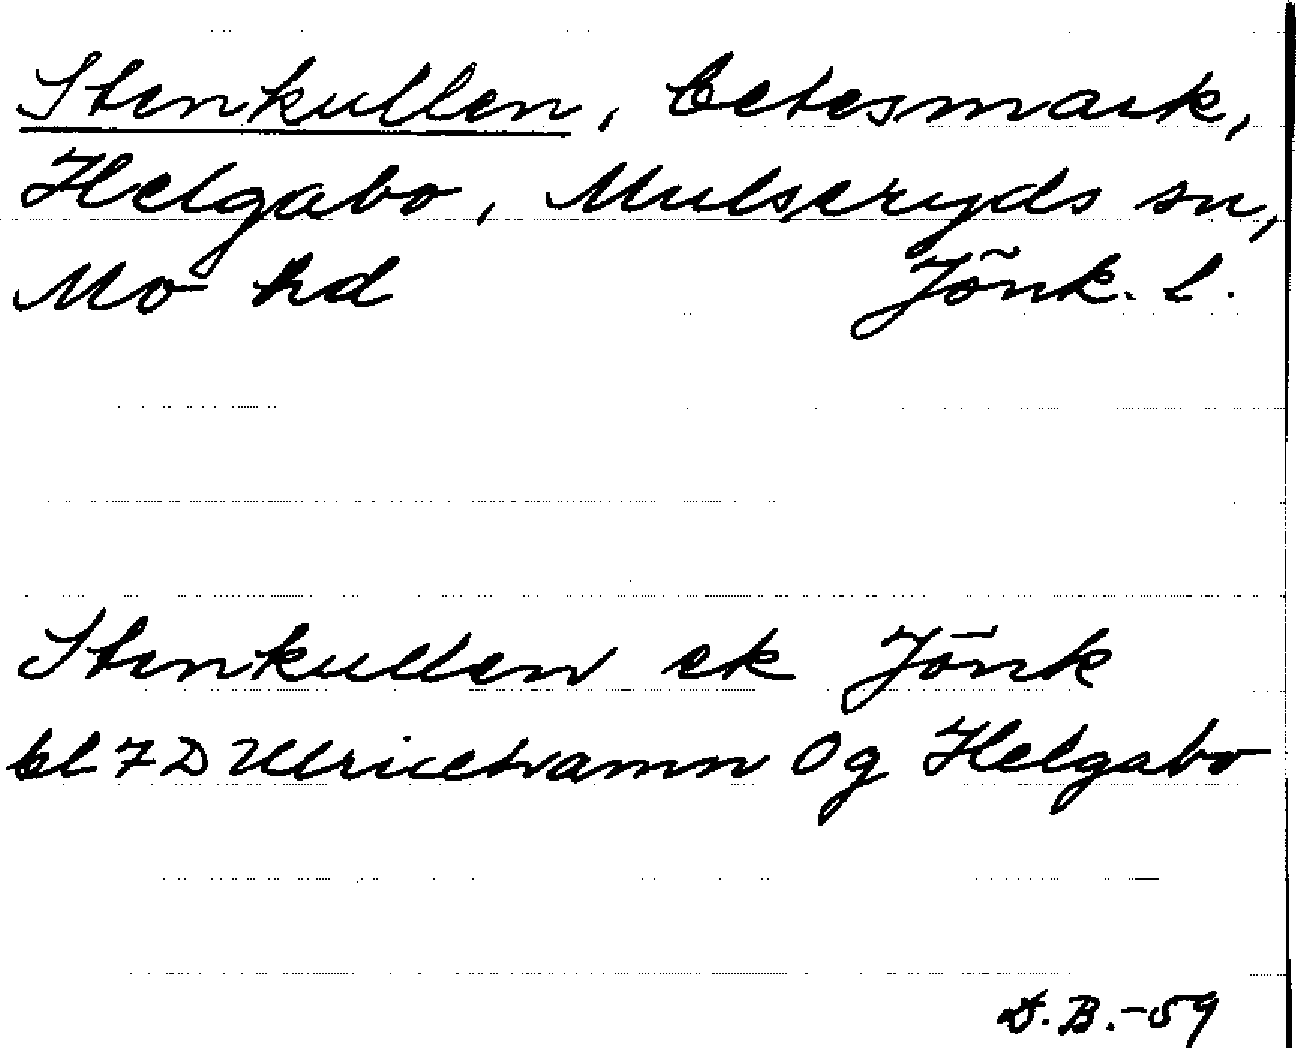 Stenkullen, betesmark,
Helgabo, Mulseryds sn,
Mo hd Jönk. l.
Stenkullen ek Jönk
bl 7 D Ulricehamn Og Helgabo
D.B.-59